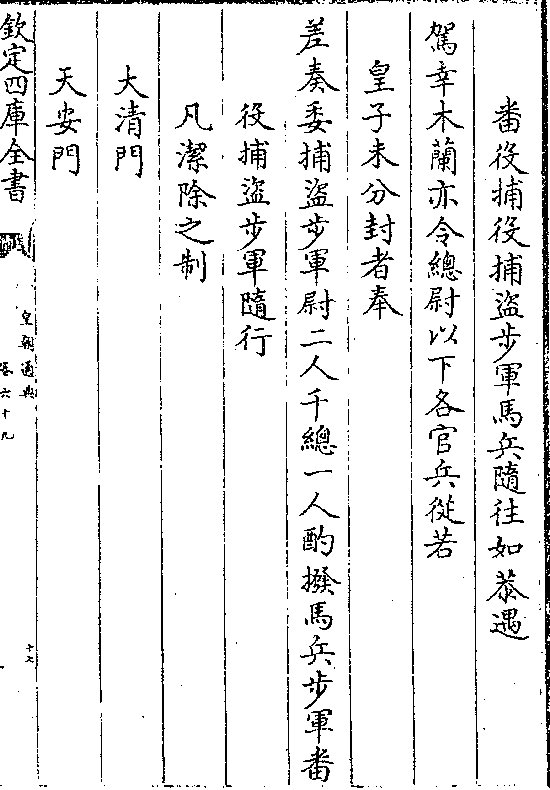 番役捕役捕盜步軍馬兵隨往如恭遇
駕幸木蘭亦令總尉以下各官兵從若
皇子未分封者奉
差奏委捕盜步軍尉二人千總一人酌撥馬兵步軍番
役捕盜步軍隨行
凡潔除之制
大清門
天安門
欽定四庫全書
皇朝通典
卷六十九
十七